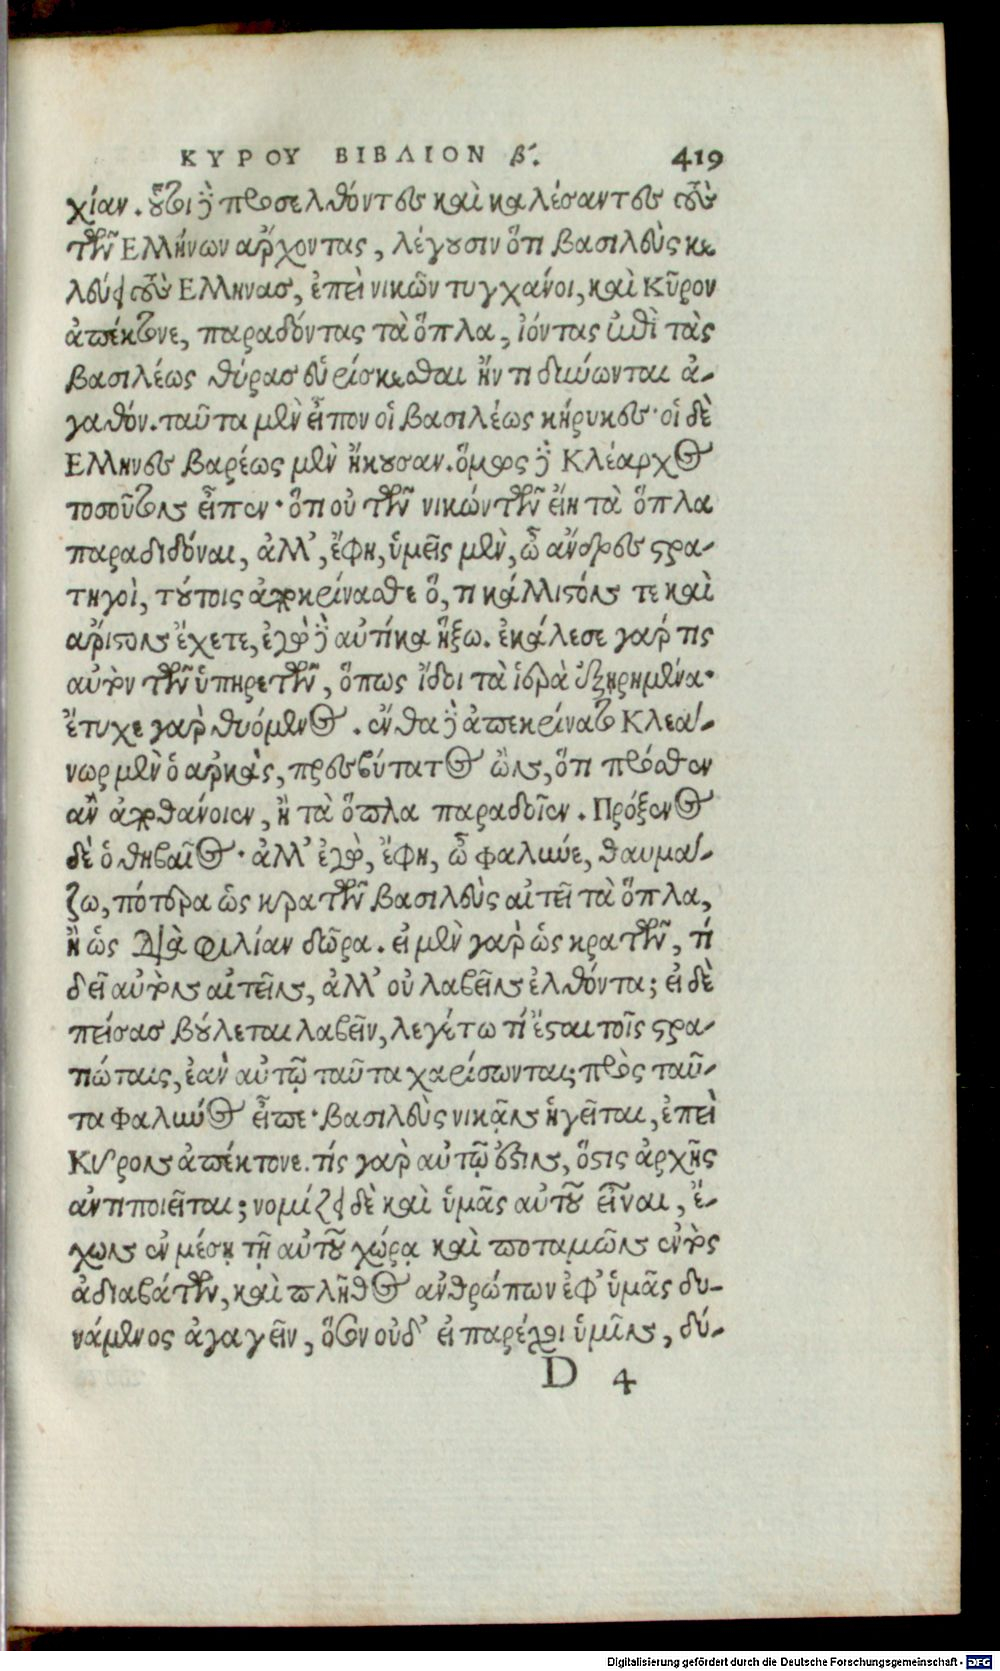 ΚΥΡΟΥ ΒΙΒΛΙΟΝ β´. 419
χίαν. οὗτοι δὲ προσελθόντες καὶ καλέσαντες τοὺς
τῶν Ελλήνων ἄρχοντας, λέγουσιν ὅτι βασιλεὺς κε
λεύει τοὺς Ελληνας, ἐπεὶ νικῶν τυγχάνοι, καὶ Κῦρον
ἀπέκτονε, παραδόντας τὰ ὅπλα, ἰόντας ἐπὶ τὰς
βασιλέως θύρας εὑρίσκεσθαι ἤν τι δύνωνται ἀ-
γαθόν. ταῦτα μὲν εἶπον οἱ βασιλέως κήρυκες· οἱ δὲ
Ελληνες βαρέως μὲν ἤκουσαν. ὅμως δὲ Κλέαρχος
τοσοῦτον εἶπεν· ὅτι οὐ τῶν νικώντων εἴη τὰ ὅπλα
παραδιδόναι, ἀλλ', ἔφη, ὑμεῖς μὲν, ὦ ἄνδρες στρα-
τηγοὶ, τούτοις ἀποκρίνασθε ὅ, τι κάλλιστόν τε καὶ
ἄριστον ἔχετε, ἐγὼ δὲ αὐτίκα ἥξω. ἐκάλεσε γάρ τις
αὐτὸν τῶν ὑπηρετῶν, ὅπως ἴδοι τὰ ἱερὰ ἐξῃρημένα·
ἔτυχε γὰρ θυόμενος. ἔνθα δὲ ἀπεκρίνατο Κλεά-
νωρ μὲν ὁ ἀρκὰς, πρεσβύτατος ὢν, ὅτι πρόσθεν
ἂν ἀποθάνοιεν, ἢ τὰ ὅπλα παραδοῖεν. Πρόξενος
δὲ ὁ θηβαῖος· ἀλλ' ἐγὼ, ἔφη, ὦ φαλῖνε, θαυμά-
ζω, πότερα ὡς κρατῶν βασιλεὺς αἰτεῖ τὰ ὅπλα,
ἢ ὡς διὰ φιλίαν δῶρα. εἰ μὲν γὰρ ὡς κρατῶν, τί
δεῖ αὐτὸν αἰτεῖν, ἀλλ' οὐ λαβεῖν ἐλθόντα; εἰ δὲ
πείσας βούλεται λαβεῖν, λεγέτω τί ἔσται τοῖς στρα-
τιώταις, ἐὰν αὐτῷ ταῦτα χαρίσωνται; πρὸς ταῦ-
τα Φαλῖνος εἶπε· βασιλεὺς νικᾷν ἡγεῖται, ἐπεὶ
Κῦρον ἀπέκτονε. τίς γὰρ αὐτῷ ἔστιν, ὅστις ἀρχῆς
ἀντιποιεῖται; νομίζει δὲ καὶ ὑμᾶς αὐτοῦ εἶναι, ἔ-
χων ἐν μέσῃ τῇ αὐτοῦ χώρᾳ καὶ ποταμῶν ἐντὸς
ἀδιαβάτων, καὶ πλῆθος ἀνθρώπων ἐφ' ὑμᾶς δυ-
νάμενος ἀγαγεῖν, ὅσον οὐδ' εἰ παρέχοι ὑμῖν, δύ-
D 4
Digitalisierung gefördert durch die Deutsche Forschungsgemeinschaft - DFG